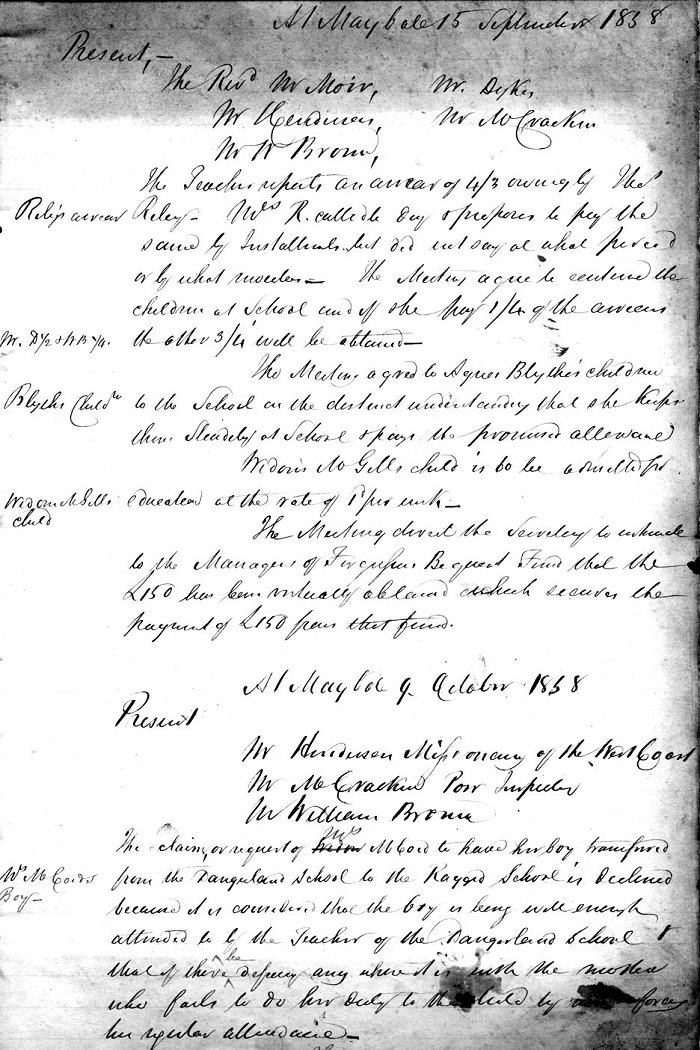 At Maybole 15 September 1858
Present,—
The Revd Mr Moir, Mr. Dykes
Mr Henderson, Mr McCracken
Mr W Brown,
The Teacher reports an arrear of 4/3 owing by Thos
Relig's arrear Reley— Mrs R. called to day & proposes to pay the
same by Instalments but did not say at what period
or by what
The Meeting agree to continue the
children at School and if she pay 1/4 of the arrears
the other 3/4 will be obtained—
The Meeting agreed to Agnes Blythe's children
Blyths Childn to the School on the distinct understanding that she keeps
them Steadily at School & pays the promised allowance
Widow McGills child is to be admitted for
Widow McGills child education at the rate of 1d per week—
The Meeting direct the Secretary to intimate
to the Managers of Fergusson Bequest Fund that the
£150 has been virtually obtained which secures the
payment of £150 from that fund.
At Maybole 9 October 1858
Present
Mr Henderson Missionary of the West Coast
Mr McCracken Poor Inspector
Mr William Brown
The claim, or request of Mrs McCord to have her boy transferred
Mrs McCords Boy— from the Dangerland School to the Ragged School is declined
because it is considered that the boy is being well enough
attended to by the Teacher of the Dangerland School &
that if there be any where it is with the mother
who fails to do her duty to the child by forcing
his regular attendance—